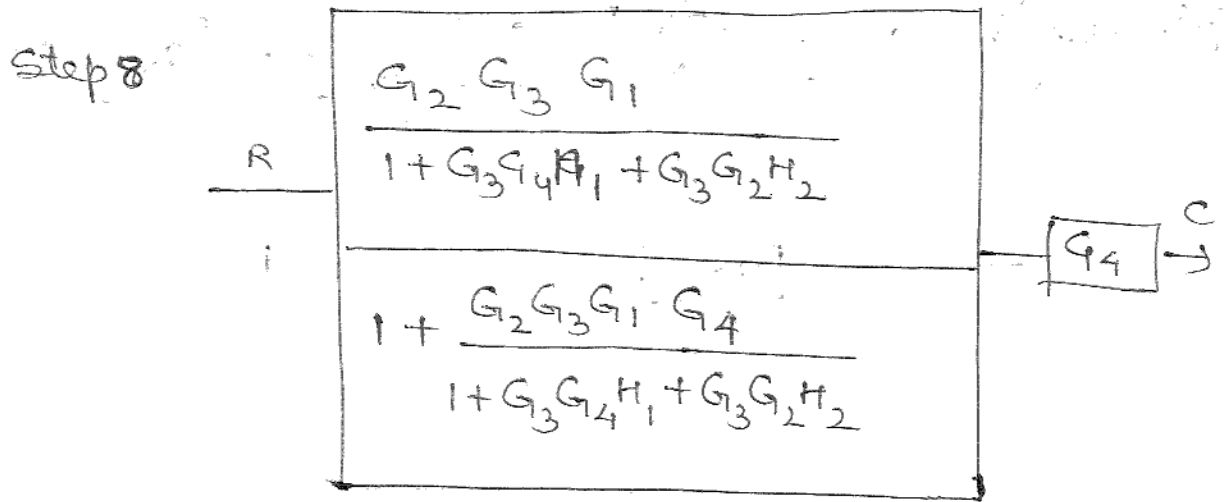 Step 8
G₂ G₃ G₁
R
1 + G₃G₄H₁ + G₃G₂H₂
C
G₄
1 + G₂G₃G₁ G₄
1 + G₃G₄H₁ + G₃G₂H₂